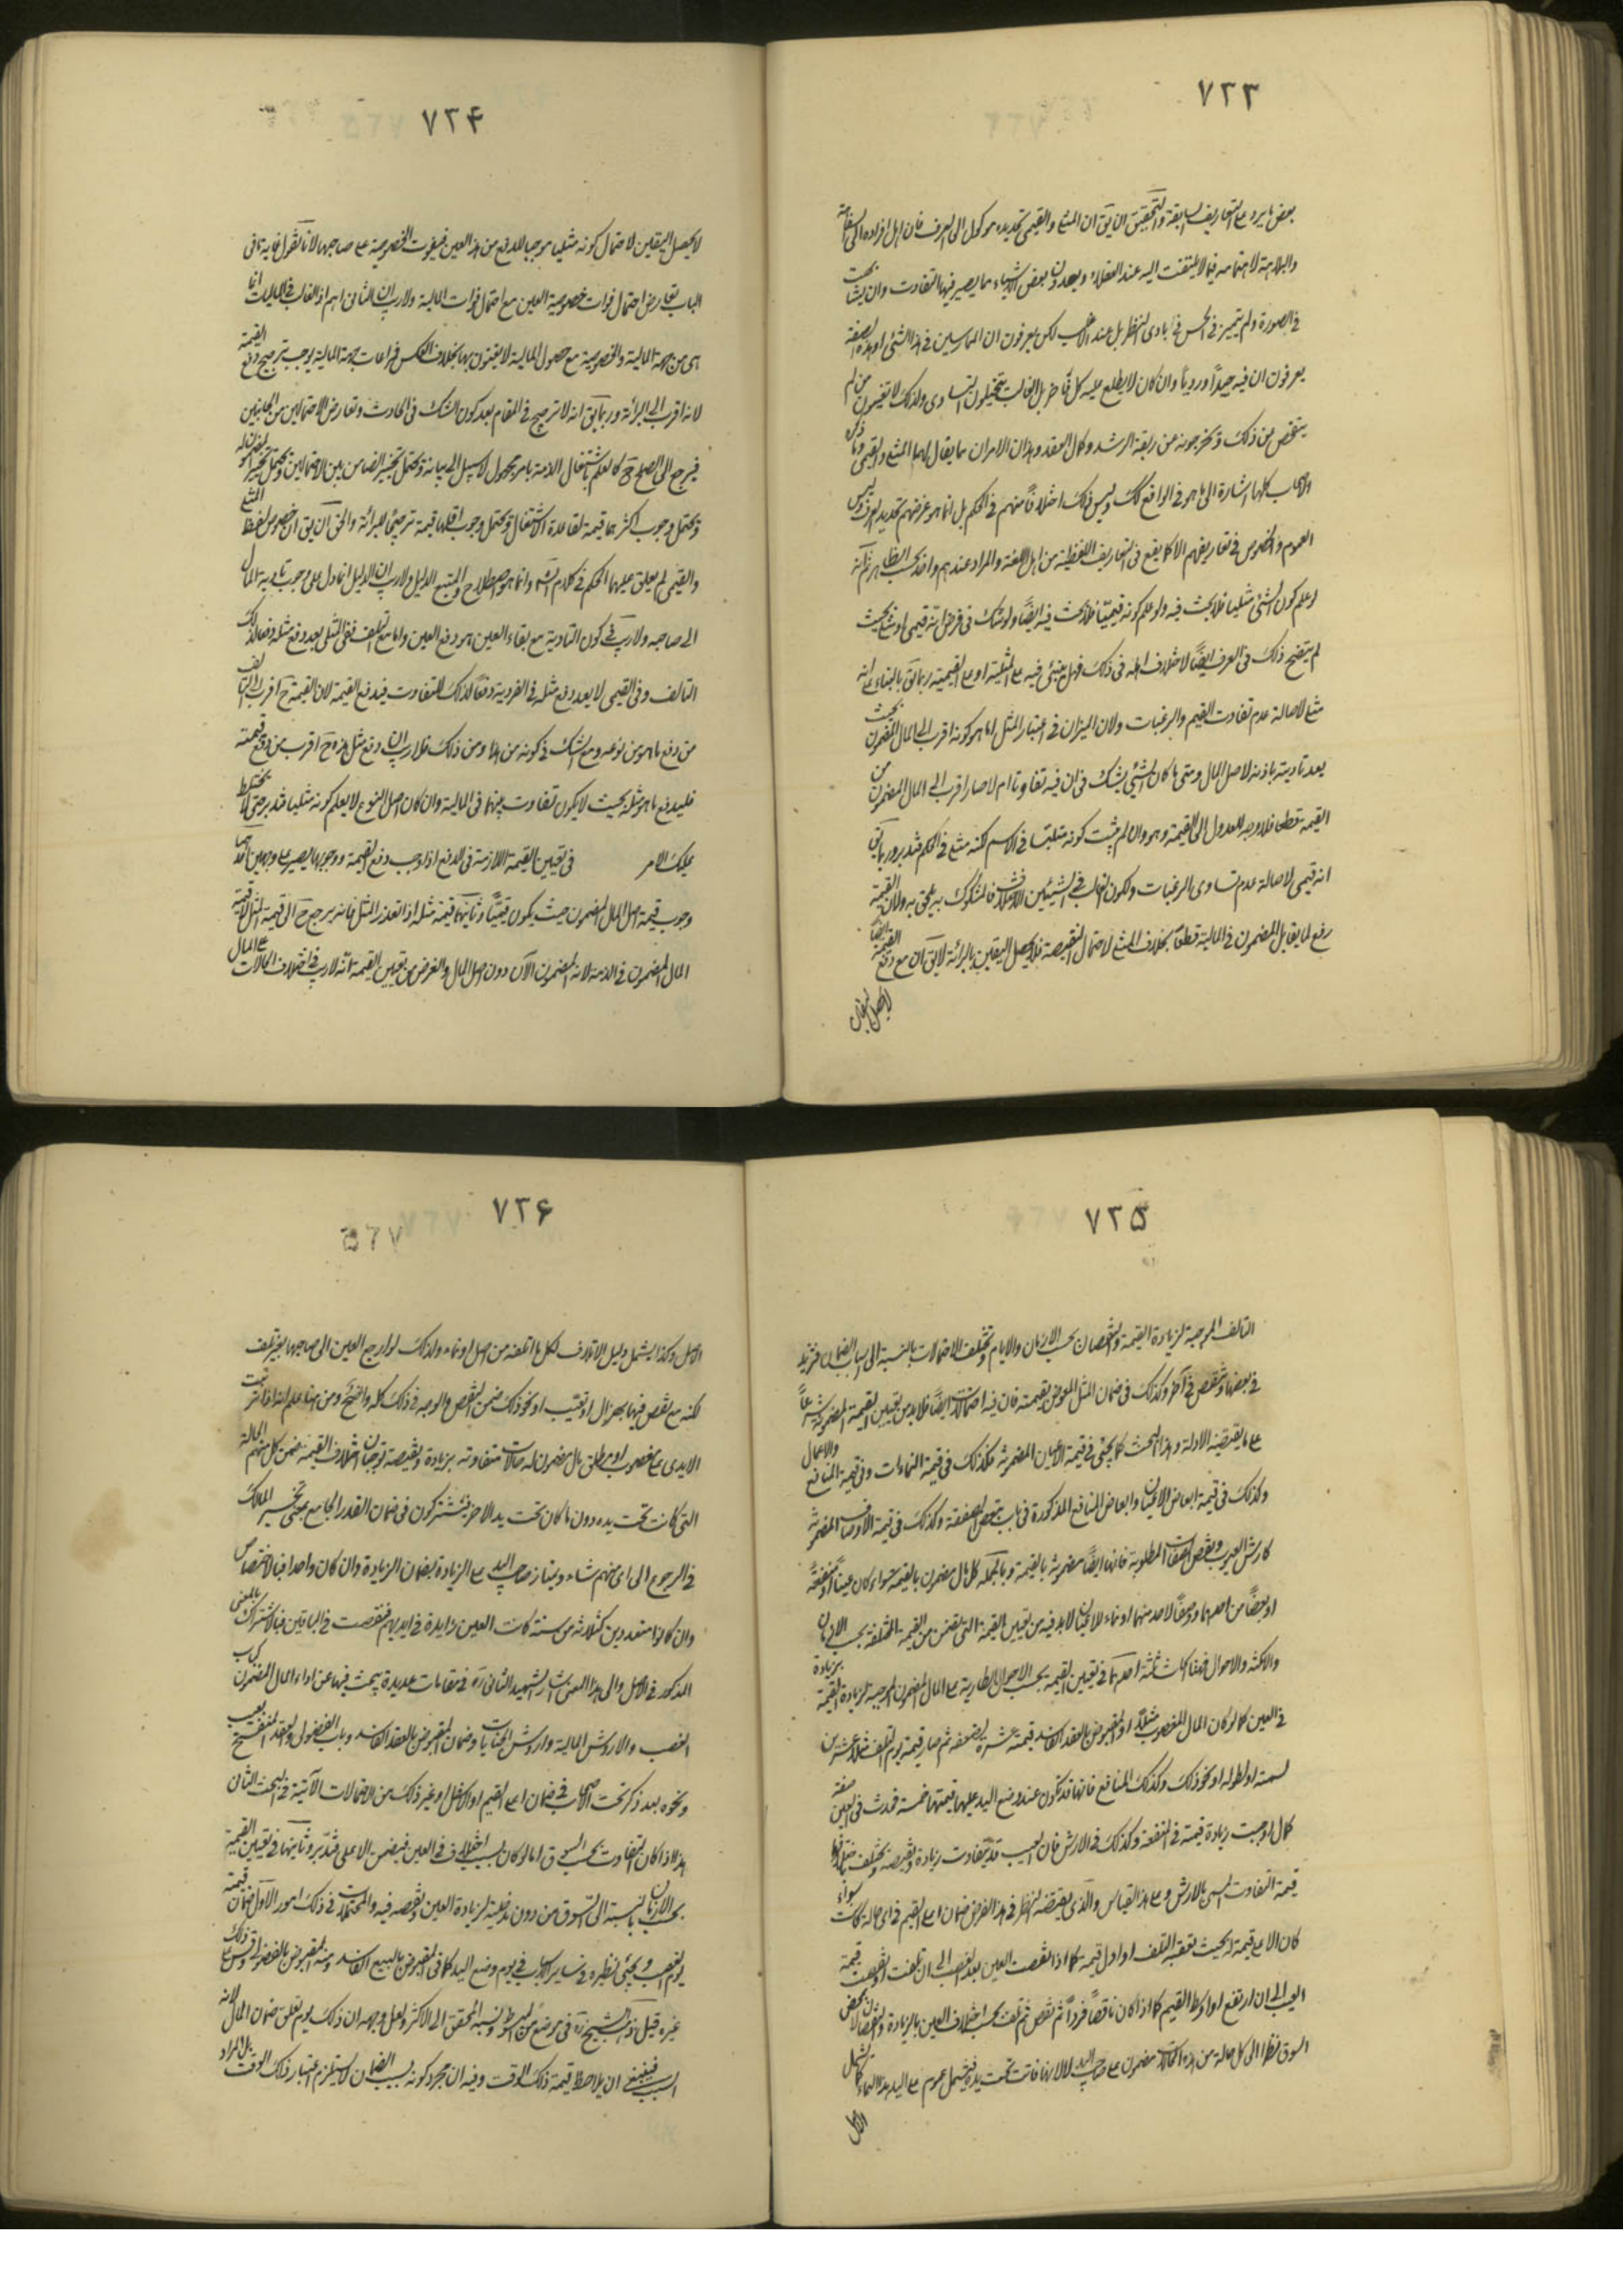 ٧٢٣
بعض ما يرد على التعاريف السابقة والتحقيق ان يق ان المثلي والقيمي تحديده موكول الى العرف فان اهل افراده
فيما لا يلتفت اليه عند العقلاء ويعدون بعض الاشياء مما يصير فيها التفاوت وان
في الصورة ولم يتميز في الحس في بادى النظر بل عند لكن يعرفون ان الممارسين في هذا الشئ او هذه الصفة
يعرفون ان فيه جيداً وردياً وان كان لا يطلع عليه كل بل الغالب يتخيلون التساوى ولذلك
من ذلك ويخرجونه عن ربقة الرشد وكمال العقد وهذان الامران ما يقال لهما المثلي والقيمي وما ذكره
الاصحاب كلها اشارة الى ما هو في الواقع كذلك وليس ذلك اختلافاً منهم في الحكم بل انما هو غرضهم تحديد العرف وليس
العموم والخصوص في تعاريفهم الا كما يقع في التعاريف اللفظية من اهل اللغة والمراد عندهم واحد بحسب الظاهر ثم انه
لو علم كون الشئ مثليا فلا بحث فيه ولو علم كونه قيميّا فلا بحث فيه ايضًا ولو شك في فرض انه قيمي او مثلي بحيث
لم يتضح ذلك في العرف ايضًا لاختلاف اهله في ذلك فهل يبنى فيه على المثلية او على القيمية ربما يق بالبناء على انه
مثلي لاصالة عدم تفاوت القيم والرغبات ولان الميزان في اعتبار المثل انما هو كونه اقرب الى المال المضمون بحيث
يعد تاديته تادية لاصل المال ومتى ما كان الشئ يشك في ان فيه تفاوتا ام لا صار اقرب الى المال المضمون من
القيمة قطعا فلا وجه للعدول الى القيمة وهو وان لم يثبت كونه مثليا في الاسم لكنه مثلي في الحكم فتدبر وربما يق
انه قيمي لاصالة عدم تساوى الرغبات ولكون الغالب في الشيئين الاختلاف فالمشكوك فيه يلحق به ولان القيمة
رفع لما يقابل المضمون في المالية قطعًا بخلاف المثلي لاحتمال النقيصة فلا يحصل اليقين بالبرائة لا يق ان مع دفع القيمة ايضًا
لا يحصل اليقين
٧٢۴
لا يحصل اليقين لاحتمال كونه مثليا موجبا للدفع من هذا العين فيفوت الخصوصية على صاحبها لانا نقول غاية ما في
الباب تعارض احتمال فوات خصوصية العين مع احتمال فوات المالية ولا ريب ان الثاني اهم اذ الغالب في الماليات انما
هى من جهة المالية والخصوصية مع حصول المالية لا يعتنون بها بخلاف العكس فمراعات جهة المالية يوجب ترجيح دفع القيمة
لانه اقرب الى البرائة وربما يق انه لا ترجيح في المقام بعد كون الشك في الحادث وتعارض الاحتمالين من الجانبين
فيرجع الى الصلح ح كالعلم باشتغال الذمة بامر مجهول لا سبيل الى بيانه ويحتمل تخيير الضامن بين الاحتمالين ويحتمل تخيير المضمون له
ويحتمل وجوب اكثرهما قيمة لقاعدة الاشتغال ويحتمل وجوب اقلهما قيمة ترجيحًا للبرائة والحق ان يق ان خصوص لفظ المثلي
والقيمي لم يعلق عليهما الحكم في كلام وانما هو اصطلاح والمتبع الدليل ولا ريب ان الدليل انما دل على وجوب تادية المال
الى صاحبه ولا ريب في كون التادية مع بقاء العين هو دفع العين واما مع التلف ففي المثلي يعد دفع مثله دفعا لذلك
التالف وفي القيمي لا يعد دفع مثله في الفردية دفعًا لذلك للتفاوت فيدفع القيمة لان القيمة ح اقرب الى التالف
من دفع ما هو من نوعه ومع الشك في كونه من هذا ومن ذلك فلا ريب ان دفع مثل هذه ح اقرب من دفع قيمته
فليدفع ما هو مثله بحيث لا يكون تفاوت بينهما في المالية وان كان اصل النوع لا يعلم كونه مثليا فتدبر حتى لا يختلط
عليك الامر في تعيين القيمة اللازمة في الدفع اذا وجب دفع القيمة ووجوبها يصير على وجهين احدهما
وجوب قيمة اصل المال المضمون حيث يكون قيميًّا وثانيهما قيمة مثله اذا تعذر المثل فانه يرجع ح الى قيمة المثل لا قيمة
المال المضمون في الذمة لانه المضمون الآن دون اصل المال والغرض من تعيين القيمة انه لا ريب في اختلاف الحالات على المال
٧٢۵
التالف الموجبة لزيادة القيمة والنقصان بحسب الازمان والايام وتختلف الاحتمالات بالنسبة الى اسباب الضمان فتزيد
في بعضها وتنقص في آخر وكذلك في ضمان المثل المعوض بقيمته فان فيه احتمالات ايضًا فلا بد من تعيين القيمة المضمونة شرعاً
على ما يقتضيه الادلة وهذا البحث كما يجئ في قيمة الاعيان المضمونة فكذلك في قيمة النماءات وفي قيمة المنافع والاعمال
وكذلك في قيمة ابعاض الاعيان وابعاض المنافع المذكورة في باب تبعض الصفقة وكذلك في قيمة الاوصاف المضمونة
كارش العيوب ونقص الصفات المطلوبة فانها ايضًا مضمونة بالقيمة وبالجملة كل مال مضمون بالقيمة سواء كان عيناً او منفعةً
او بعضًا من احدهما ووصفًا لاحد منهما او نماء للاعيان لابد فيه من تعيين القيمة التي يضمن من القيمة المختلفة بحسب الازمان
والامكنة والاحوال فهنا ابحاث ثلثة احدها في تعيين القيمة بحسب الاحوال الطارية على المال المضمون الموجبة لزيادة القيمة بزيادة
في العين كما لو كان المال المغصوب مثلًا او المقبوض بالعقد الفاسد قيمته عشرة لضعفه ثم صار قيمته يوم التلف مثلا عشرين
لسمنه او لطوله او نحو ذلك وكذلك المنافع فانها قد تكون عند وضع اليد عليها قيمتها خمسة فحدث في العين صفة
كمال اوجبت زيادة قيمة في المنفعة وكذلك في الارش فان العيب قد يتفاوت زيادة ونقيصة ويختلف باختلافها
قيمة التفاوت المسمى بالارش وعلى هذا القياس والذى يقتضيه النظر في هذا الفرض ضمان اعلى القيم في اى حالة كانت سواء
كان الاعلى قيمة له بحيث تعقبه التلف او اول قيمة كما اذا نقصت العين بعد الغصب الى ان تلفت او نقصت قيمة
العيب الى ان ارتفع او اوسط القيم كما اذا كان ناقصاً فزاد ثم نقص ثم تلف بحسب اختلاف العين بالزيادة والنقصان لا بمحض
السوق نظرا الى كل حالة من هذه الحالات مضمون على صاحب اليد لانها فاتت تحت يده فيشمل عموم على اليد هذا النماء كما يشمل
الاصل
٧٢۶
الاصل وكذا يشمل دليل الاتلاف لكل ما اتلفه من اصل او نماء ولذلك لو ارجع العين الى صاحبها بغير تلف
لكنه مع نقص فيها بهزال او تعيّب او نحو ذلك ضمن النقص والوجه في ذلك كله واضح ومن هنا علم انه اذا ترتبت
الايدى على مغصوب او مطلق مال مضمون له حالات متفاوتة بزيادة ونقيصة توجبان اختلاف القيمة ضمن كل منهم الحالة
التي كانت تحت يده دون ما كان تحت يد الاخر فيشتركون في ضمان القدر الجامع بمعنى تخيير المالك
في الرجوع الى اى منهم شاء ويمتاز صاحب اليد على الزيادة بضمان الزيادة وان كان واحدا فبالاختصاص
وان كانوا متعددين كثلاثة من ستة كانت العين زايدة في ايديهم فنقصت في الباقين فبالاشتراك بالمعنى
المذكور في الاصل والى هذا المعنى اشار الشهيد الثاني ره في مقامات عديدة يبحث فيها عن اداء المال المضمون كباب
الغصب والاروش المالية واروش الجنايات وضمان المقبوض بالعقد الفاسد وباب الفضولي والعقد المنفسخ بعيب
ونحوه بعد ذكر تخت الاصحاب في ضمان اعلى القيم او الاقل وغير ذلك من الاحتمالات الآتية في البحث الثاني
هذا اذا كان التفاوت بحسب السوق اما لو كان بسبب اختلاف في العين فيضمن الاعلى فتدبر وثانيها في تعيين القيمة
بحسب الازمان بالنسبة الى السوق من دون مدخلية لزيادة العين ونقصه فيه والمحتملات في ذلك امور الاول ضمان قيمة
يوم الغصب ويجئ نظيره في ساير الاسباب في يوم وضع اليد كما في المقبوض بالبيع الفاسد ومنه المقبوض بالفضولي وقس على ذلك
غيره قيل ذهب الشيخ ره في موضع من المبسوط ونسبه المحقق الى الاكثر ولعل وجهه ان ذلك يوم تعلق ضمان المال لانه
السبب فينبغي ان يلاحظ قيمة ذلك الوقت وفيه ان مجرد كونه سبب الضمان لا يستلزم اعتبار ذلك الوقت بل المراد